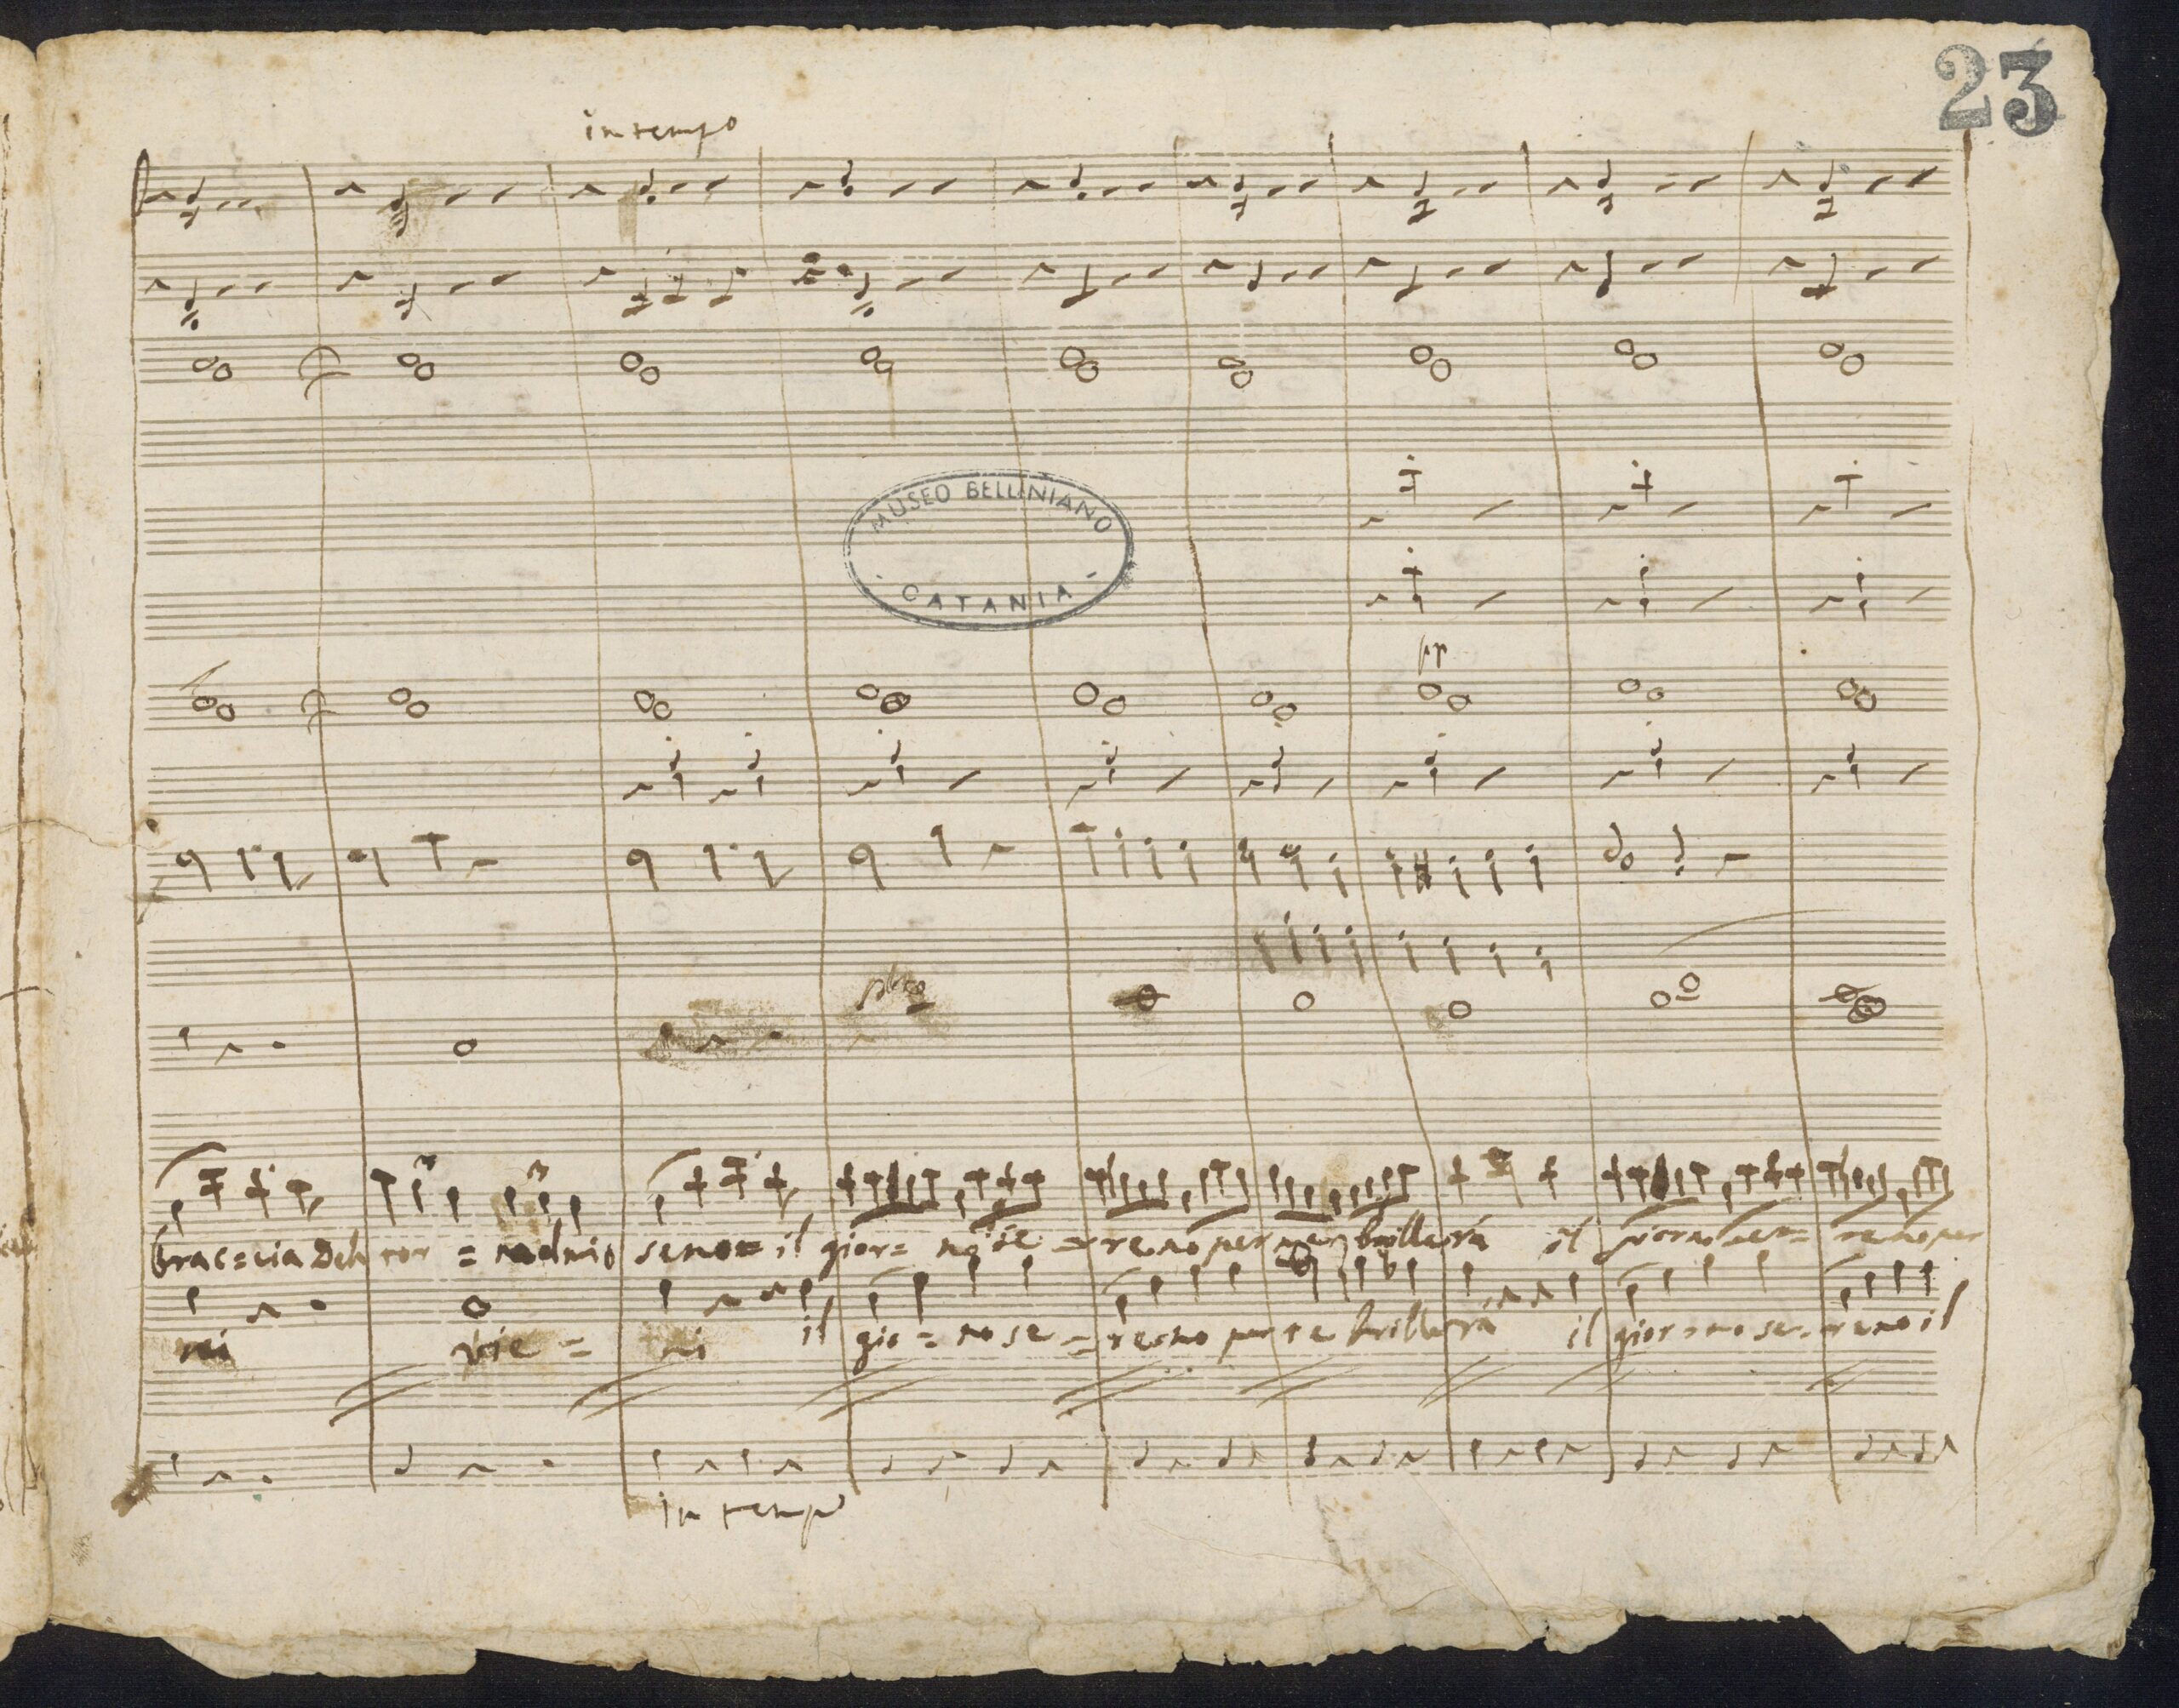 23
in tempo
MUSEO BELLINIANO
CATANIA
pp
brac=cia Deh tor = na al mio seno = il gior= no se = reno per me brillerá il giorno se = reno per
ni vie = ni il gior = no se = reno per te brillerá il gior=no se=reno il
in tempo